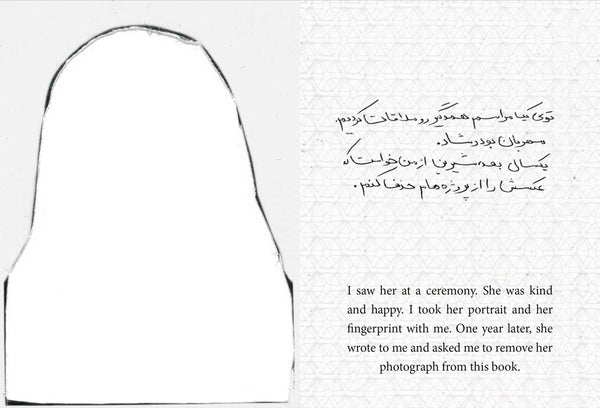 توی یک مراسم همدیگر رو ملاقات کردیم.
مهربان بود و شاد.
یکسال بعد، از من خواست که
عکسش را از پروژه هام حذف کنم.
I saw her at a ceremony. She was kind
and happy. I took her portrait and her
fingerprint with me. One year later, she
wrote to me and asked me to remove her
photograph from this book.